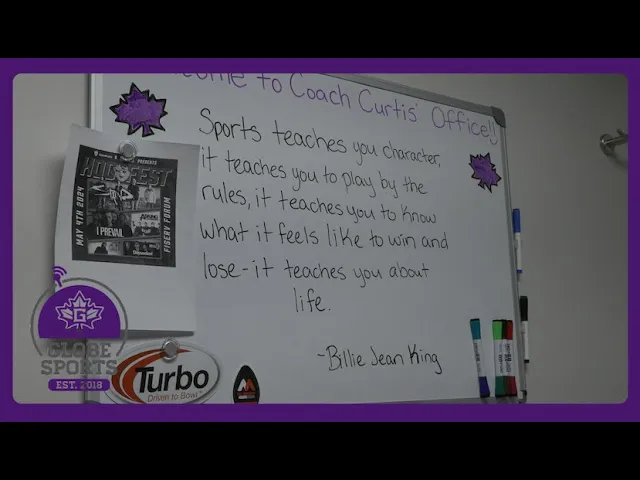 come to Coach Curtis' Office!!
Sports teaches you character,
it teaches you to play by the
rules, it teaches you to know
what it feels like to win and
lose-it teaches you about
life.
-Billie Jean King
PRESENTS
HOG FEST
MAY 4TH 2024
FISERV FORUM
I PREVAIL
G
GLOBE
SPORTS
EST. 2018
Turbo
Driven to Bowl